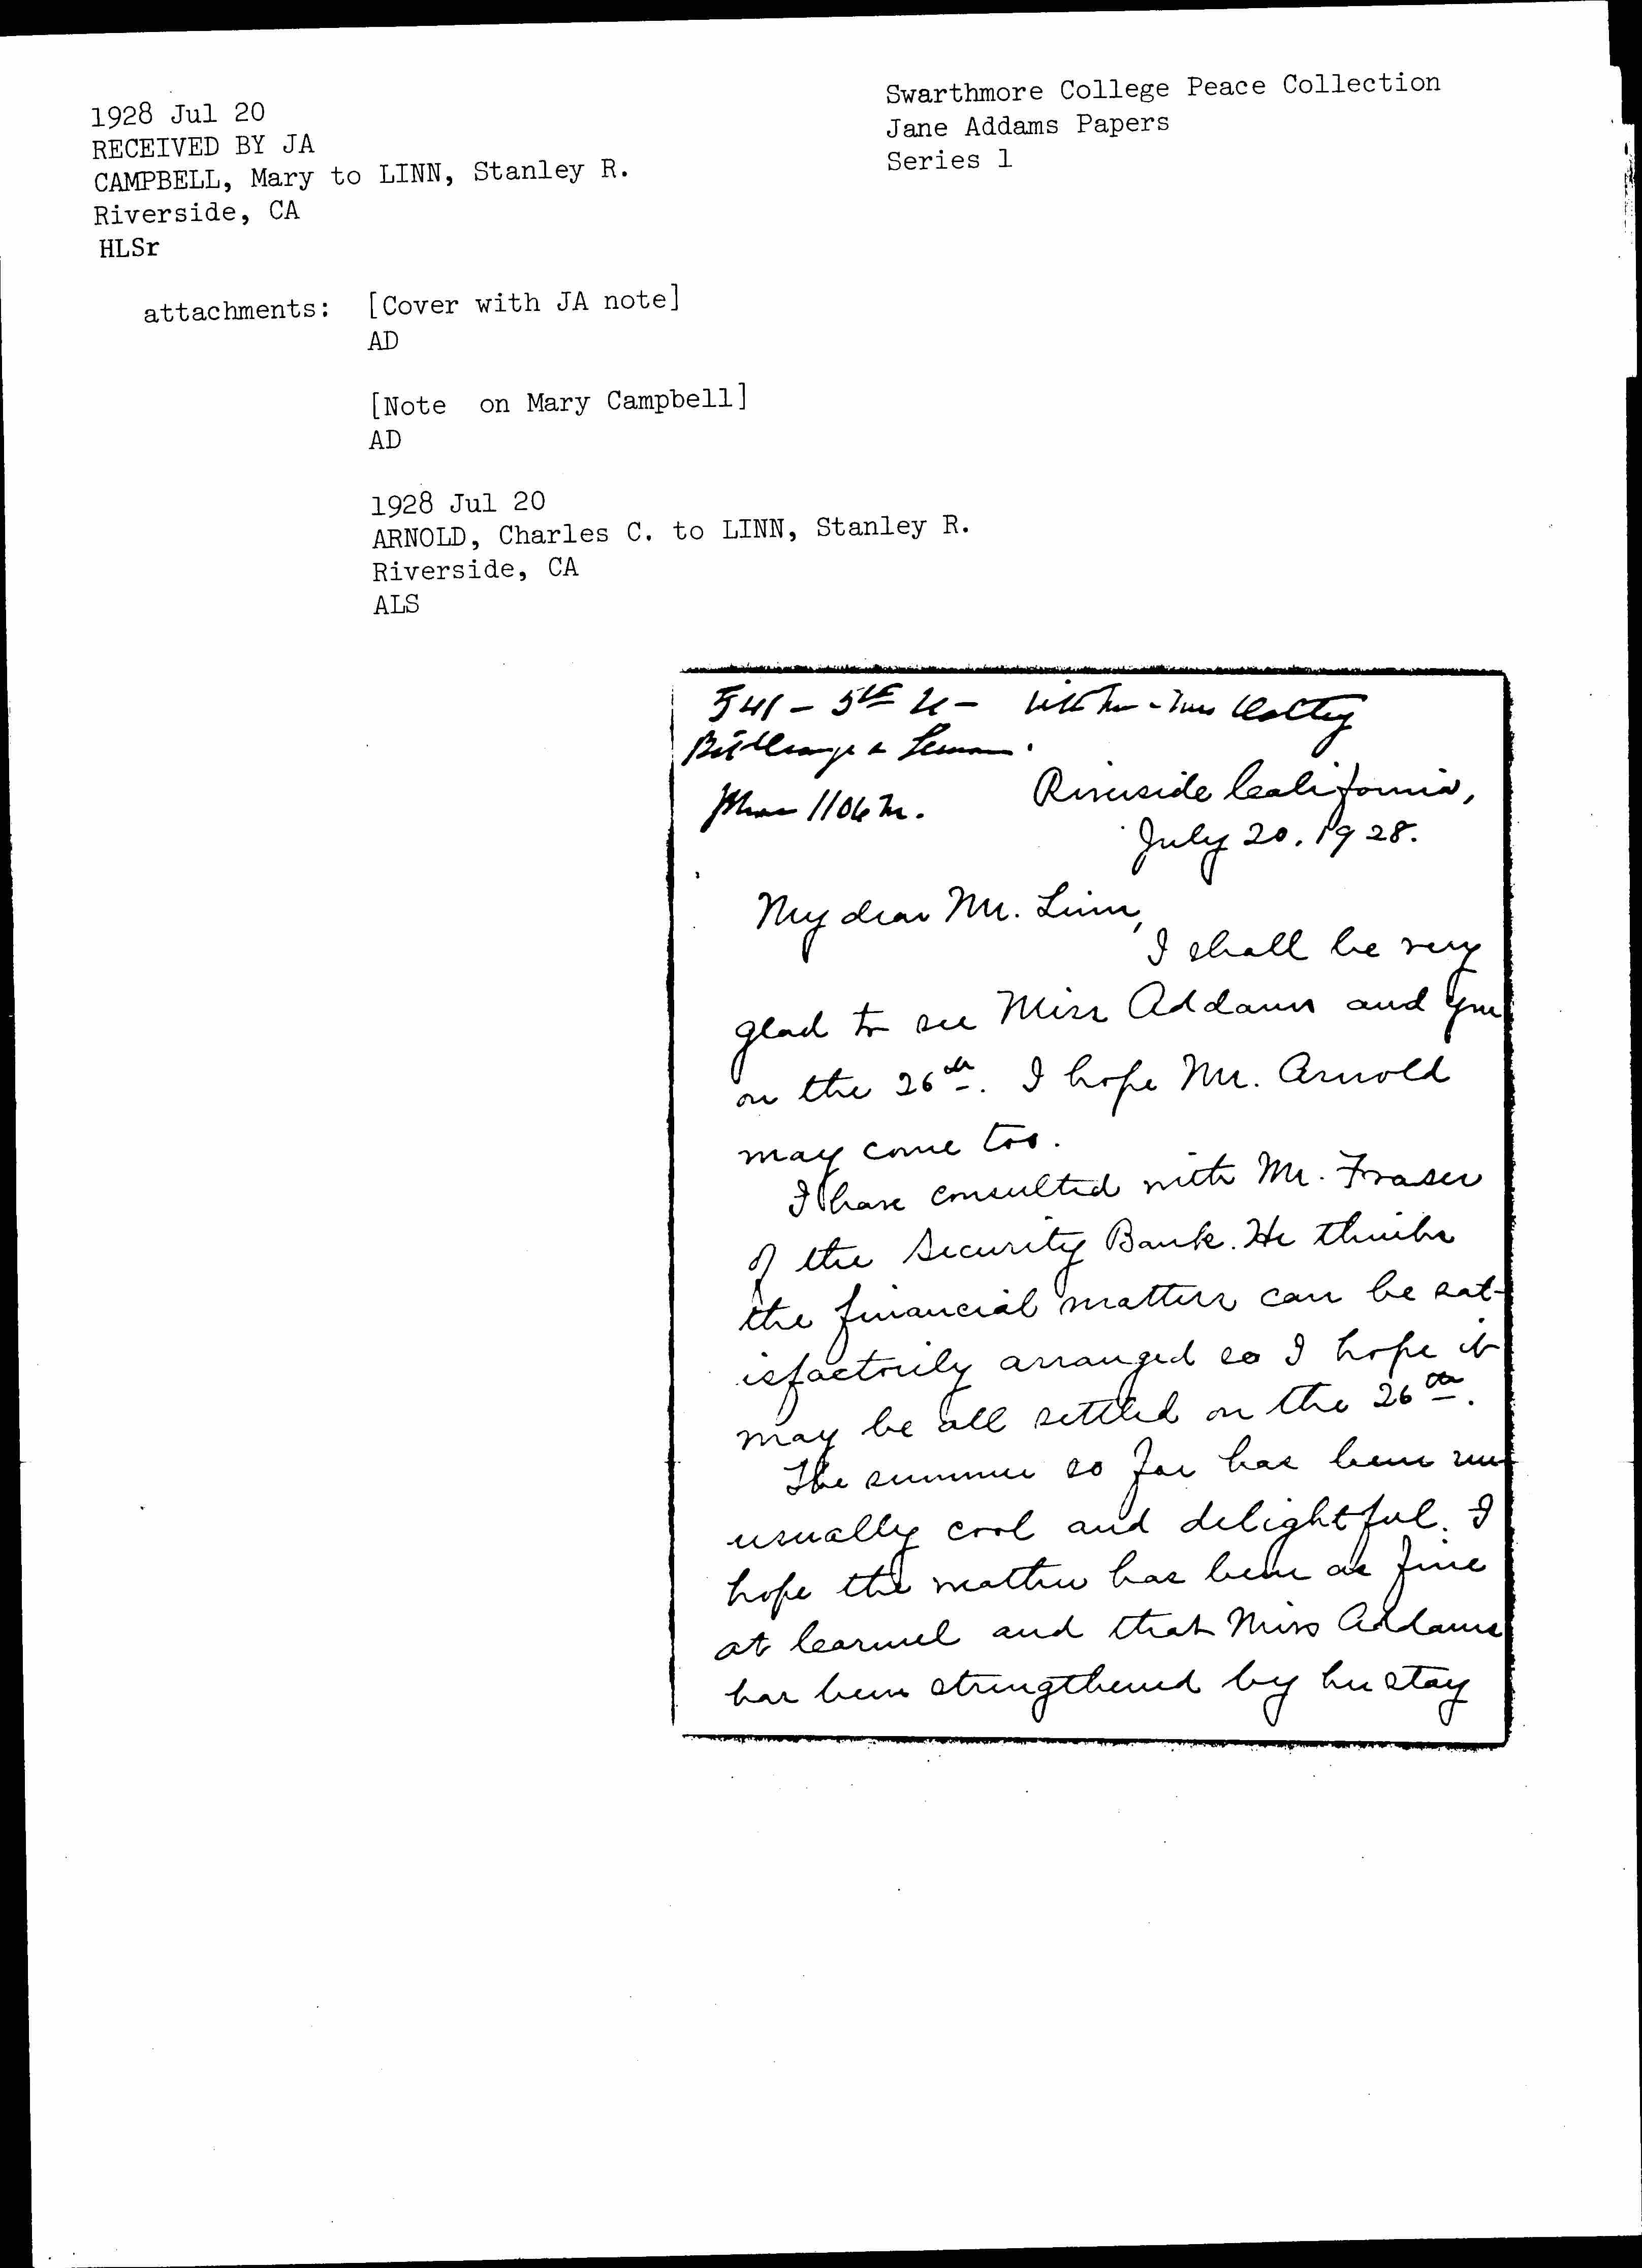 1928 Jul 20
RECEIVED BY JA
CAMPBELL, Mary to LINN, Stanley R.
Riverside, CA
HLSr
Swarthmore College Peace Collection
Jane Addams Papers
Series 1
attachments: [Cover with JA note]
AD
[Note on Mary Campbell]
AD
1928 Jul 20
ARNOLD, Charles C. to LINN, Stanley R.
Riverside, CA
ALS
541 – 5th St –
Bet Orange & Lemon.
Phone 1106 M.
Riverside California,
July 20, 1928.
My dear Mr. Linn,
I shall be very
glad to see Miss Addams and you
on the 26th. I hope Mr. Arnold
may come too.
I have consulted with Mr. Fraser
of the Security Bank. He thinks
the financial matters can be sat-
isfactorily arranged so I hope it
may be all settled on the 26th.
The summer so far has been un-
usually cool and delightful. I
hope the weather has been as fine
at Carmel and that Miss Addams
has been strengthened by her stay